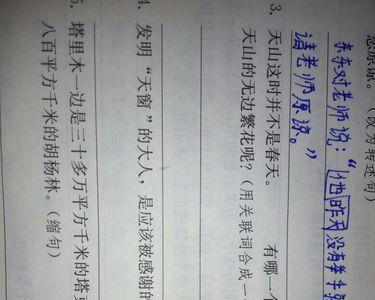 原谅。（改为转述句）
东东对老师说：“他昨天没有举手
请老师原谅。”
3. 天山这时并不是春天。 有哪一个
天山的无边繁花呢？（用关联词合成一
4. 发明“天窗”的大人，是应该被感谢的
5. 塔里木一边是三十多万平方千米的塔克
八百平方千米的胡杨林。（缩句）